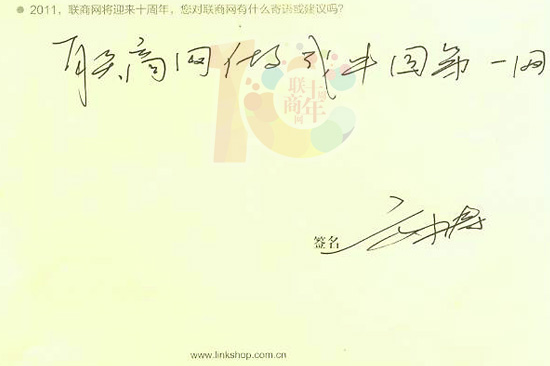 2011，联商网将迎来十周年，您对联商网有什么寄语或建议吗？
联商网做成中国第一网
联商网
十周年
签名
www.linkshop.com.cn